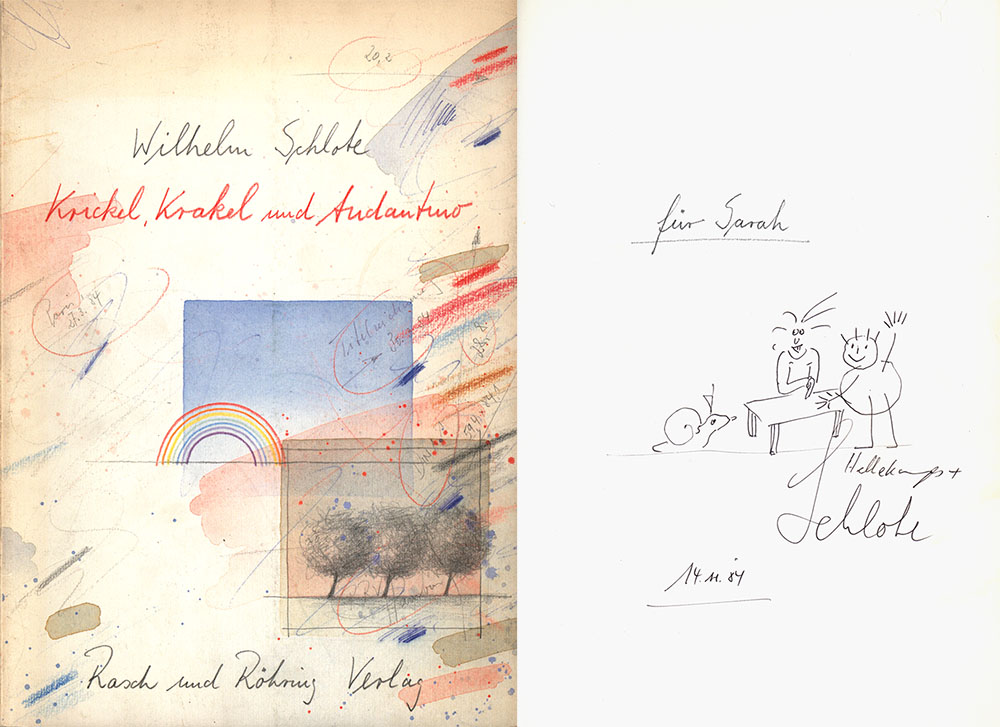 20,2
Wilhelm Schlote
Krickel, Krakel und Andantino
Paris
30.1.84
28.8.
Rasch und Röhring Verlag
für Sarah
Hellekamps +
Schlote
14.11.84